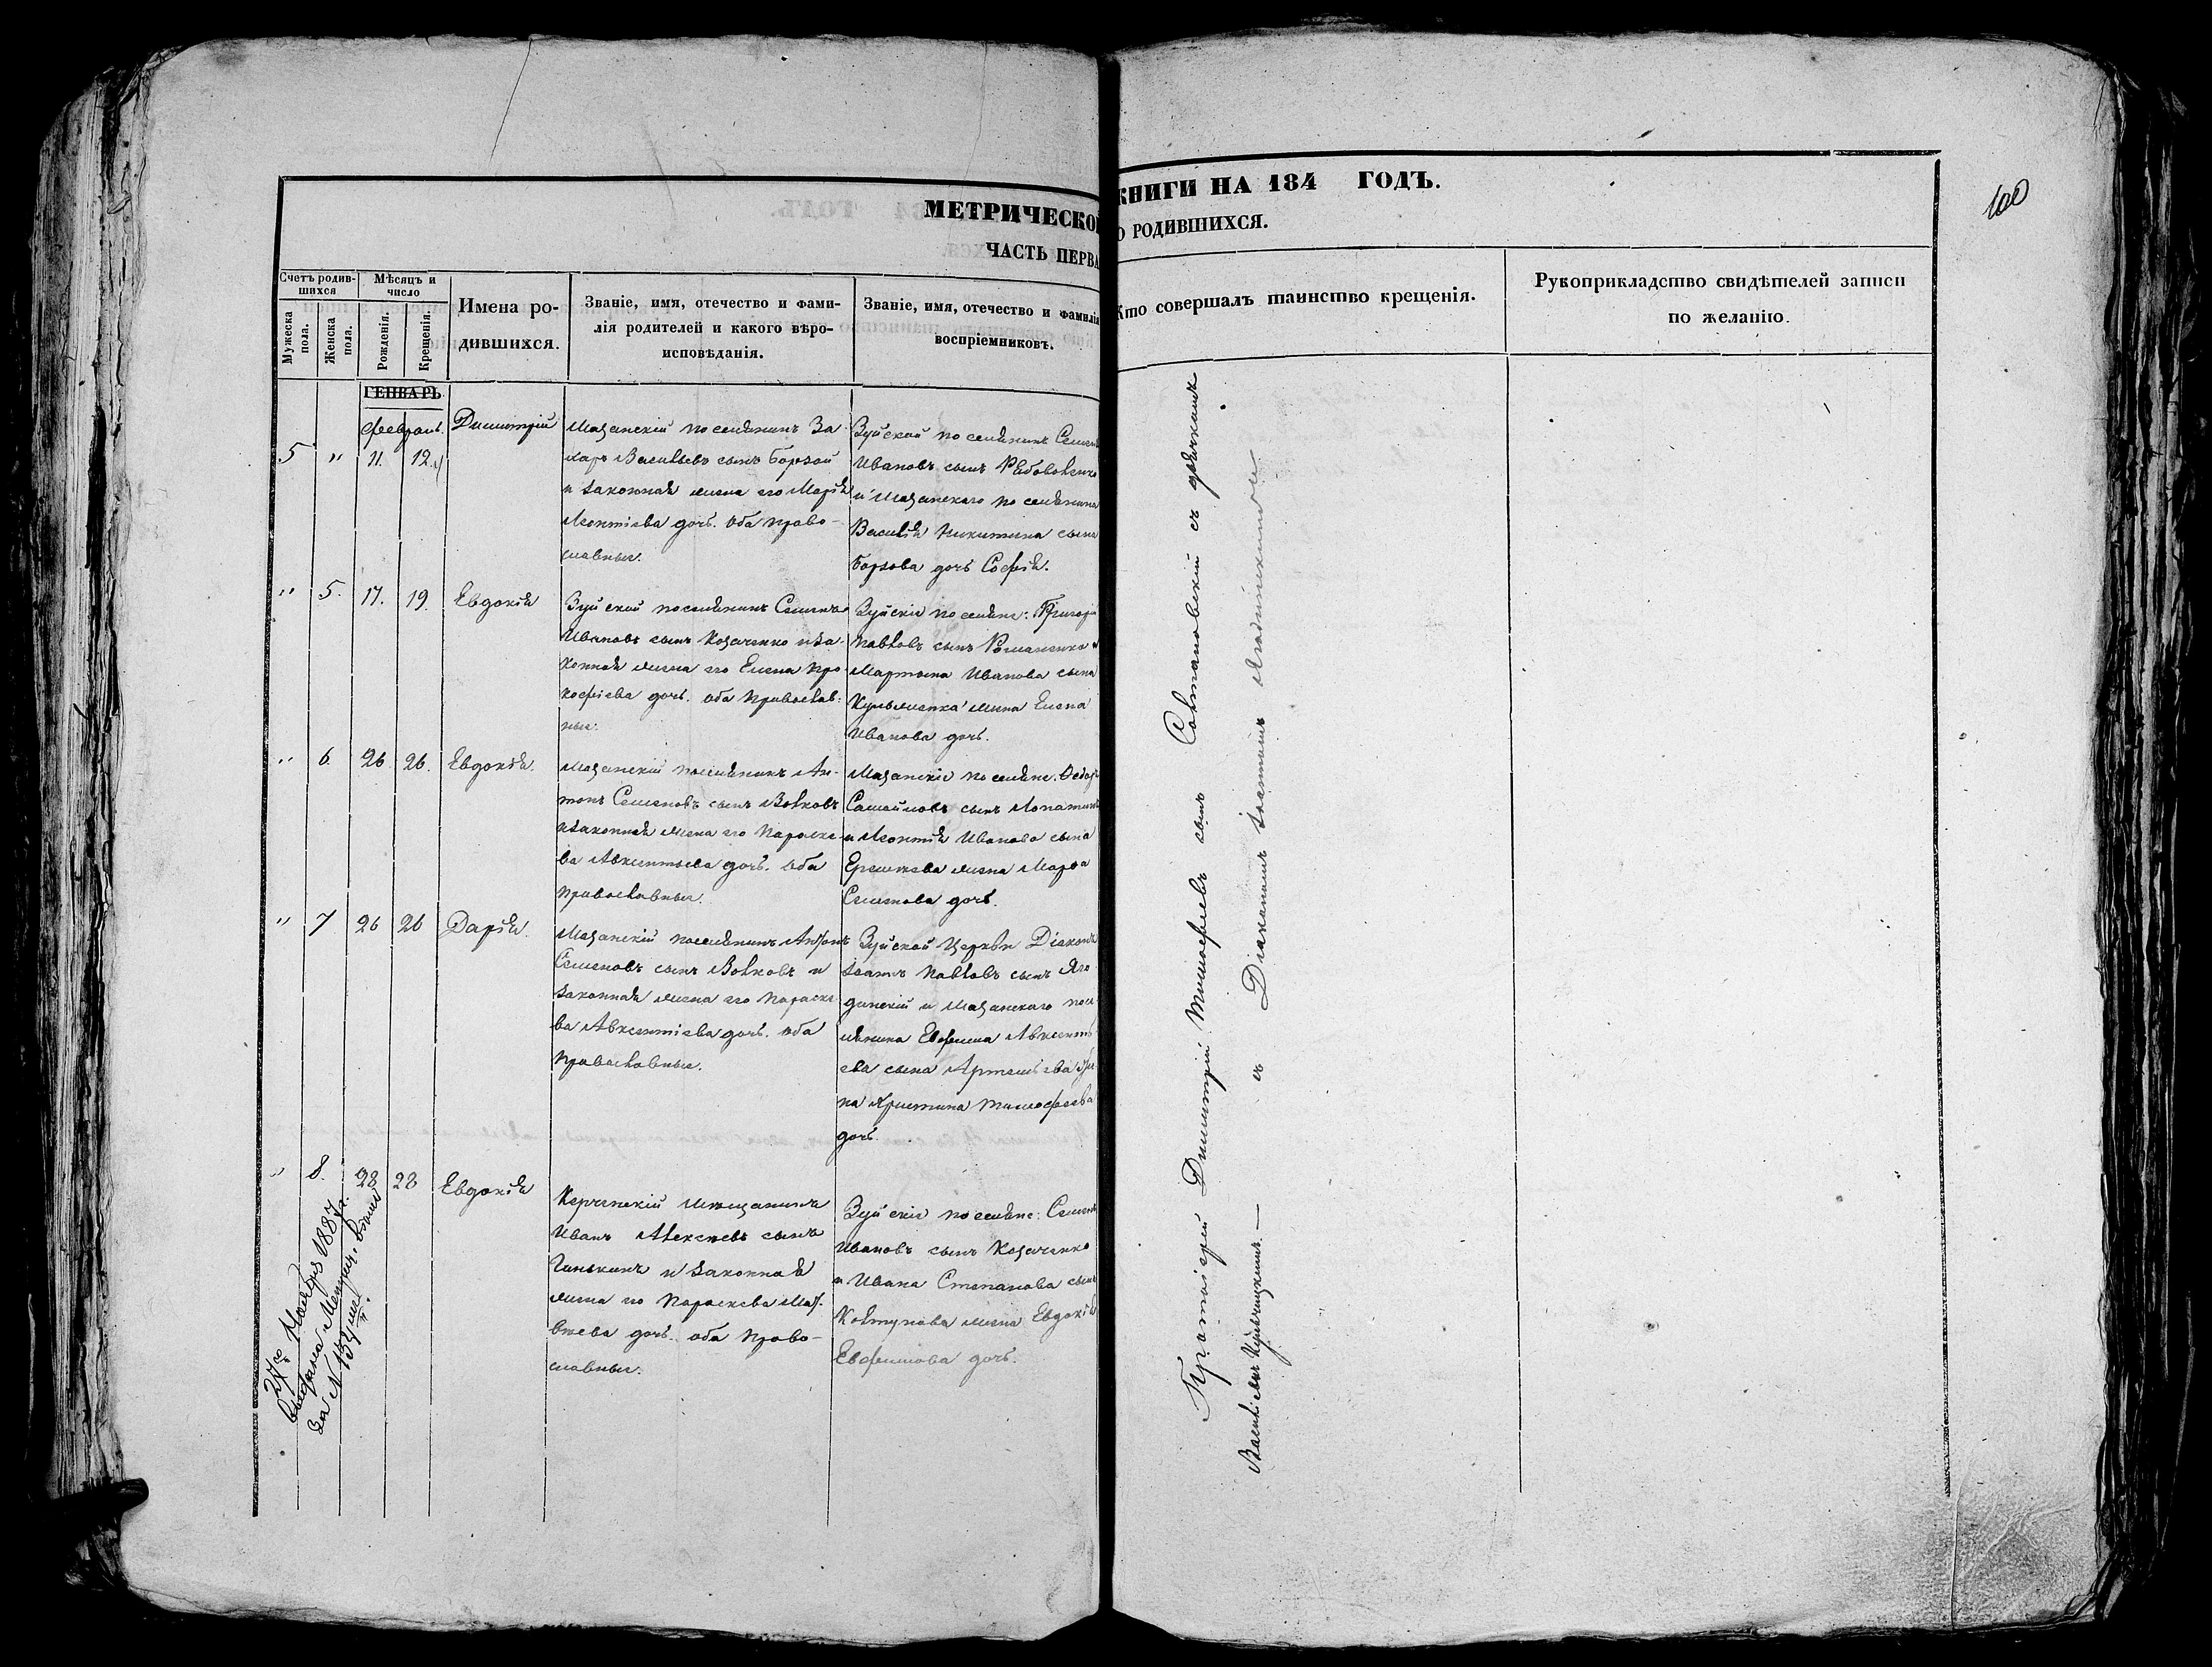 МЕТРИЧЕСКОЙ КНИГИ НА 184 ГОДЪ.
ЧАСТЬ ПЕРВА О РОДИВШИХСЯ.
100
Счетъ родив-
шихся
Мужеска пола.
Женска пола.
Мѣсяцъ и
число
Рожденія.
Крещенія.
Имена ро-
дившихся.
Званіе, имя, отечество и фами-
лія родителей и какого вѣро-
исповѣданія.
Званіе, имя, отечество и фамилія
воспріемниковъ.
Кто совершалъ таинство крещенія.
Рукоприкладство свидѣтелей записи
по желанію.
ГЕНВАРЬ
февраль.
5 " 11. 12. Димитрій
Мазанскій поселянинъ За-
харъ Васильевъ сынъ Борзой
и законная жена его Марія
Леонтіева дочь. Оба право-
славные.
Зуйской поселянинъ Семенъ
Ивановъ сынъ
и Мазанскаго поселянина
Василія Никитина сына
Борзова дочь Софія.
" 5. 17. 19. Евдокія
Зуйской поселянинъ Семенъ
Ивановъ сынъ Козаченко и за-
конная жена его Елена Про-
кофіева дочь. Оба православ-
ные.
Зуйскіе поселяне: Григорій
Павловъ сынъ Романенко и
Мартына Иванова сына
жена Елена
Иванова дочь.
" 6. 26. 26. Евдокія.
Мазанскій поселянинъ Ан-
тонъ Семеновъ сынъ Волковъ
и законная жена его Параске-
ва Авксентьева дочь. Оба
православные.
Мазанскіе поселяне. Ѳедоръ
Самойловъ сынъ Лопатинъ
и Леонтія Иванова сына
жена Марѳа
Семенова дочь.
" 7 26 26 Дарія.
Мазанскій поселянинъ Антонъ
Семеновъ сынъ Волковъ и
законная жена его Параске-
ва Авксентіева дочь. Оба
православные.
Зуйской Церкви Діаконъ
Іоаннъ Павловъ сынъ Яго-
динскій и Мазанскаго посе-
лянина Евфима Авксенть-
ева сына Артемьева же-
на Христина Тимофеева
дочь.
" 8. 28 28 Евдокія
Керченскій мещанинъ
Иванъ Алексеевъ сынъ
и законная
жена его Параскева Мат-
веева дочь. Оба право-
славные.
Зуйскіе поселяне: Семенъ
Ивановъ сынъ Козаченко
и Ивана Степанова сына
Колтунова жена Евдокія
Евфимова дочь.
27го Ноября 1887 г.
за №
Протоіерей Димитрій Тимофеевъ сынъ Солтановскій съ дьячкомъ
Васильевымъ съ Діакономъ Іоанномъ Ягодинскимъ